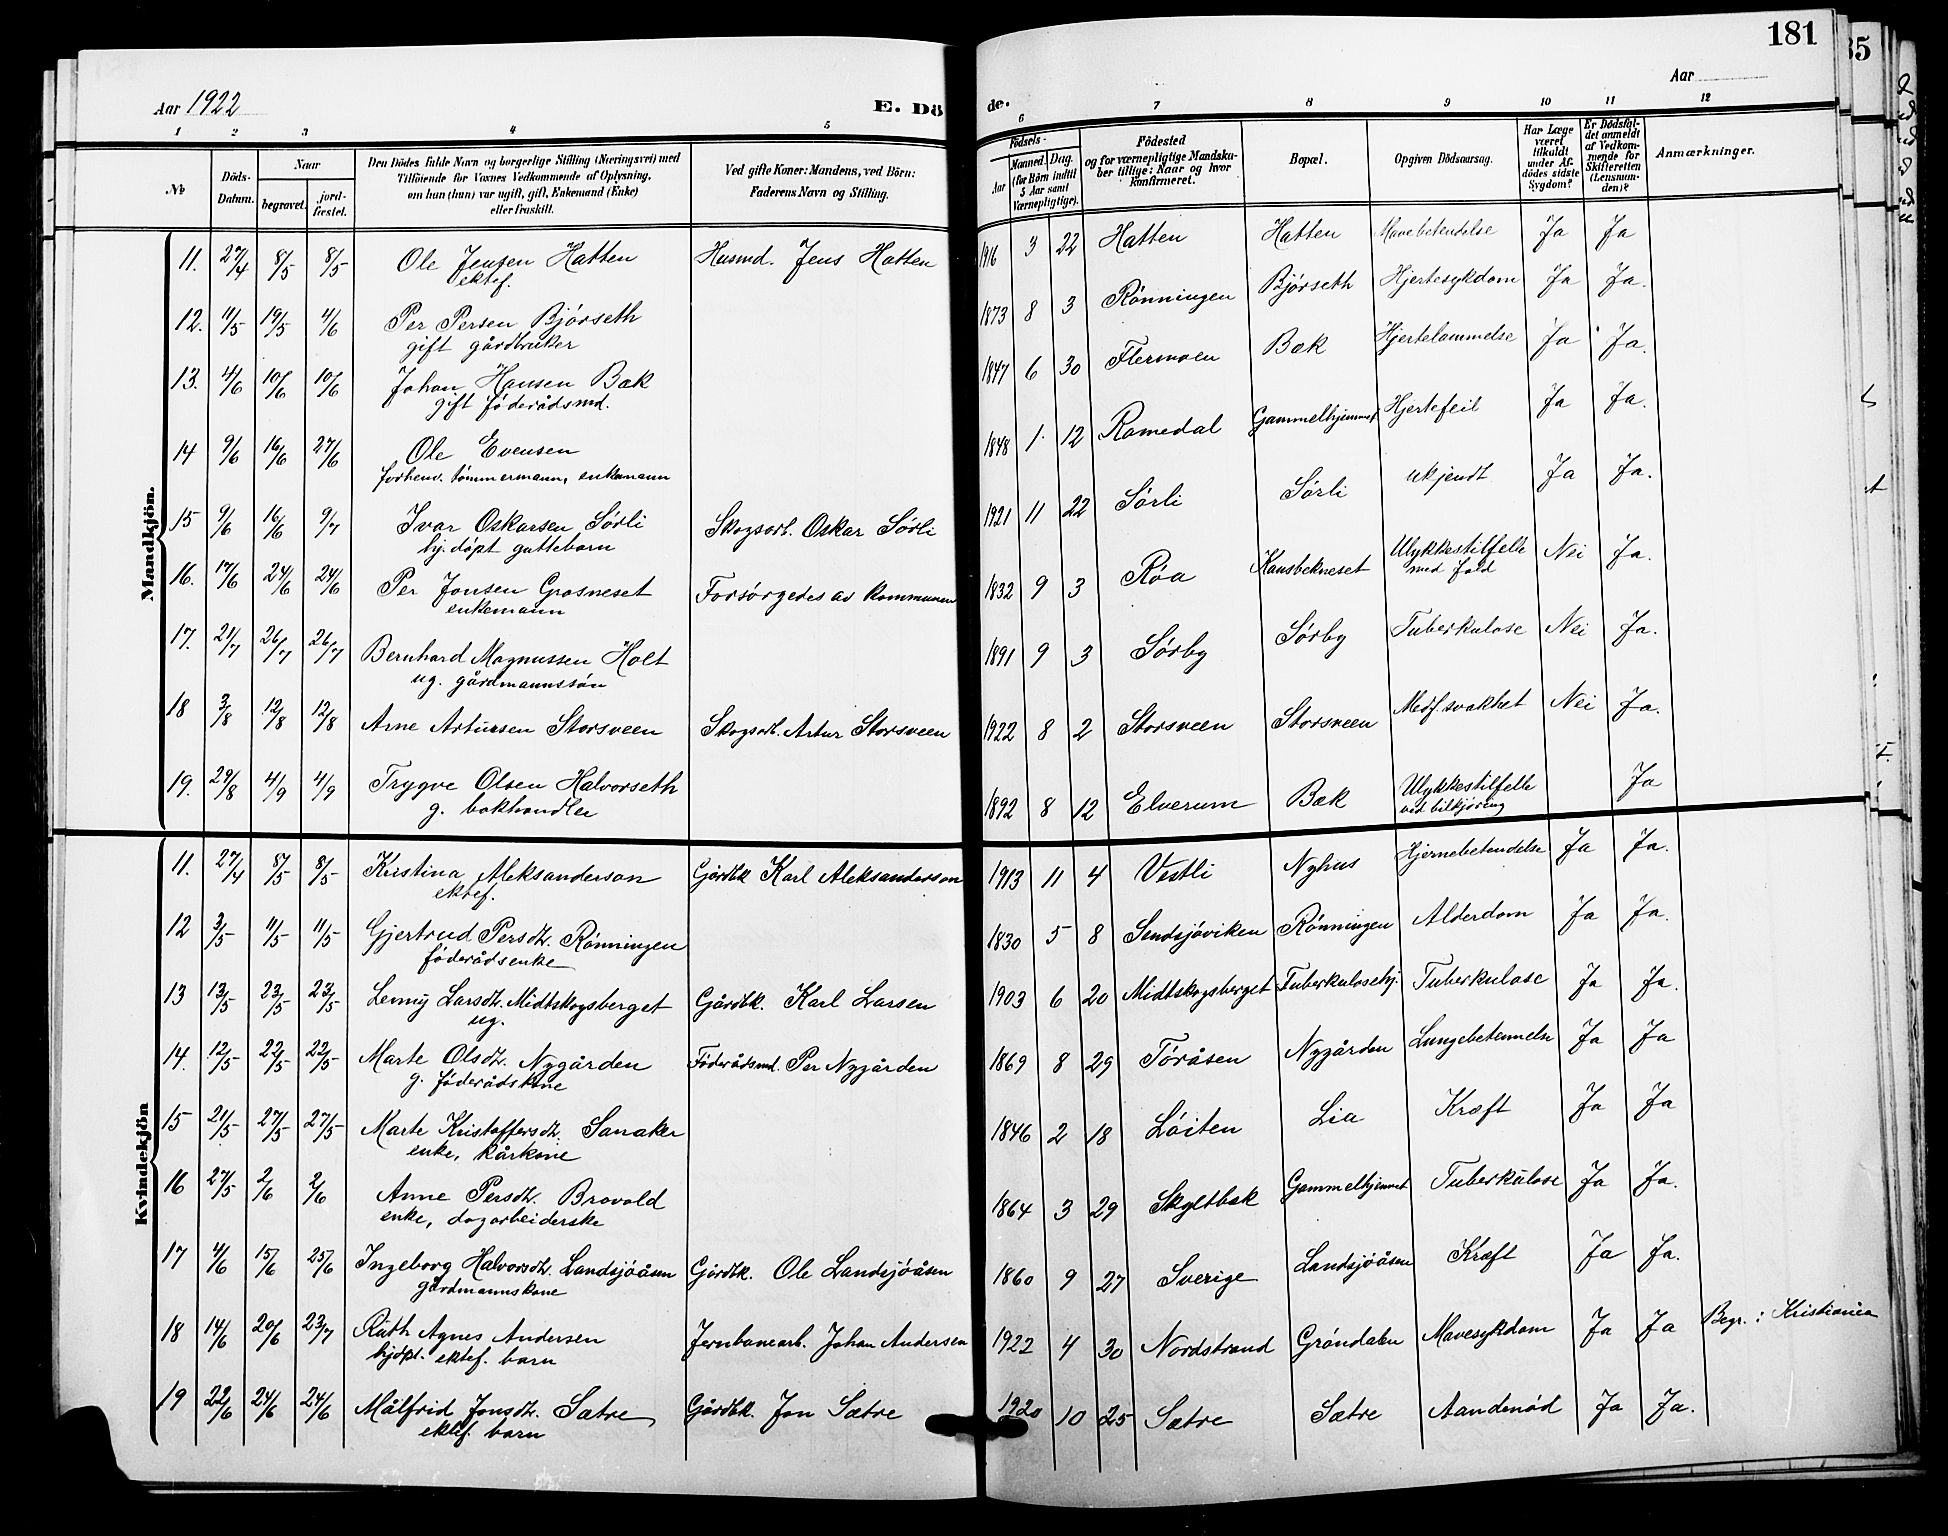 181
35
Aar 1922 E. Dö
de. Aar
1 2 3 4 5 6 7 8 9 10 11 12
No
Döds-Datum.
Naar begravet. jord-fæstet.
Den Dödes fulde Navn og borgerlige Stilling (Næringsvei) med
Tilföiende for Voxnes Vedkommende af Oplysning,
om han (hun) var ugift, gift, Enkemand (Enke)
eller fraskilt.
Ved gifte Koner: Mandens, ved Börn:
Faderens Navn og Stilling.
Födsels-
Aar Maaned. Dag.
(for Börn indtil
5 Aar samt
Værnepligtige).
Födested
og for værnepligtige Mandska-
ber tillige: Naar og hvor
konfirmeret.
Bopæl.
Opgiven Dödsaarsag.
Har Læge
været
tilkaldt
under Af-
dödes sidste
Sygdom?
Er Dödsfal-
det anmeldt
af Vedkom-
mende for
Skifteretten
(Lensman-
den)?
Anmærkninger.
Mandkjön.
11. 27/4 8/5 8/5 Ole Jensen Hatten Husmd. Jens Hatten 1916 3 22 Hatten Hatten Mavebetendelse Ja Ja
ektef.
12. 11/5 19/5 4/6 Per Persen Bjørseth 1873 8 3 Rønningen Bjørseth Hjertesykdom Ja Ja.
gift gårdbruker
13. 4/6 10/6 10/6 Johan Hansen Bæk 1847 6 30 Flermoen Bæk Hjertelammelse Ja Ja.
gift föderådsmd.
14 9/6 16/6 27/6 Ole Evensen 1848 1. 12 Romedal Gammelhjemmet Hjertefeil Ja Ja.
forhenv. tømmermann, enkemann
15 9/6 16/6 9/7 Ivar Oskarsen Sørli Skogsarb. Oskar Sørli 1921 11 22 Sørli Sørli ukjendt Ja Ja.
hj. døpt guttebarn
16. 17/6 24/6 24/6 Per Jonsen Grasneset Forsørgedes av kommunen 1832 9 3 Røa Kansbekneset Ulykkestilfelle med fald Nei Ja.
enkemann
17. 21/7 26/7 26/7 Bernhard Magnussen Holt 1891 9 3 Sørby Sørby Tuberkulose Nei Ja.
ug. gårdmannssøn
18 3/8 12/8 12/8 Arne Artursen Storsveen Skogsarb. Artur Storsveen 1922 8 2 Storsveen Storsveen Medf. svakhet Nei Ja.
19. 29/8 4/9 4/9 Trygve Olsen Halvorseth 1892 8 12 Elverum Bæk Ulykkestilfelle ved bilkjøring Ja
g. bokhandler
Kvindekjön
11. 27/4 8/5 8/5 Kristina Aleksanderson Gårdbk Karl Aleksanderson 1913 11 4 Vestli Nyhus Hjernebetendelse Ja Ja.
ektef.
12 3/5 11/5 11/5 Gjertrud Persdtr. Rønningen 1830 5 8 Sendsjøviken Rønningen Alderdom Ja Ja.
föderådsenke
13 13/5 23/5 23/5 Lenny Larsdtr. Midtskogsberget Gårdbk. Karl Larsen 1903 6 20 Midtskogsberget Tuberkulosehj. Tuberkulose Ja Ja.
ug.
14. 12/5 22/5 22/5 Marte Olsdtr. Nygården Föderådsmd. Per Nygården 1869 8 29 Töråsen Nygården Lungebetennelse Ja Ja
g. föderådskone
15 21/5 27/5 27/5 Marte Kristoffersdtr. Sanaker 1846 2 18 Löiten Lia Kræft Ja Ja
enke, kårkone
16 27/5 2/6 2/6 Anne Persdtr. Brovold 1864 3 29 Skyltbæk Gammelhjemmet Tuberkulose Ja Ja.
enke, dagarbeiderske
17 4/6 15/6 25/6 Ingeborg Halvorsdtr. Landsjøåsen Gårdbk. Ole Landsjøåsen 1860 9 27 Sverige Landsjøåsen Kræft Ja Ja.
gårdmannskone
18 14/6 20/6 23/7 Ruth Agnes Andersen Jernbanearb. Johan Andersen 1922 4 30 Nordstrand Gröndalen Mavesykdom Ja Ja Begr. i Kristiania
hjdøpt. ektef. barn
19 22/6 24/6 24/6 Målfrid Jonsdtr. Sætre Gårdbk. Jon Sætre 1920 10 25 Sætre Sætre Aandenød Ja Ja.
ektef. barn